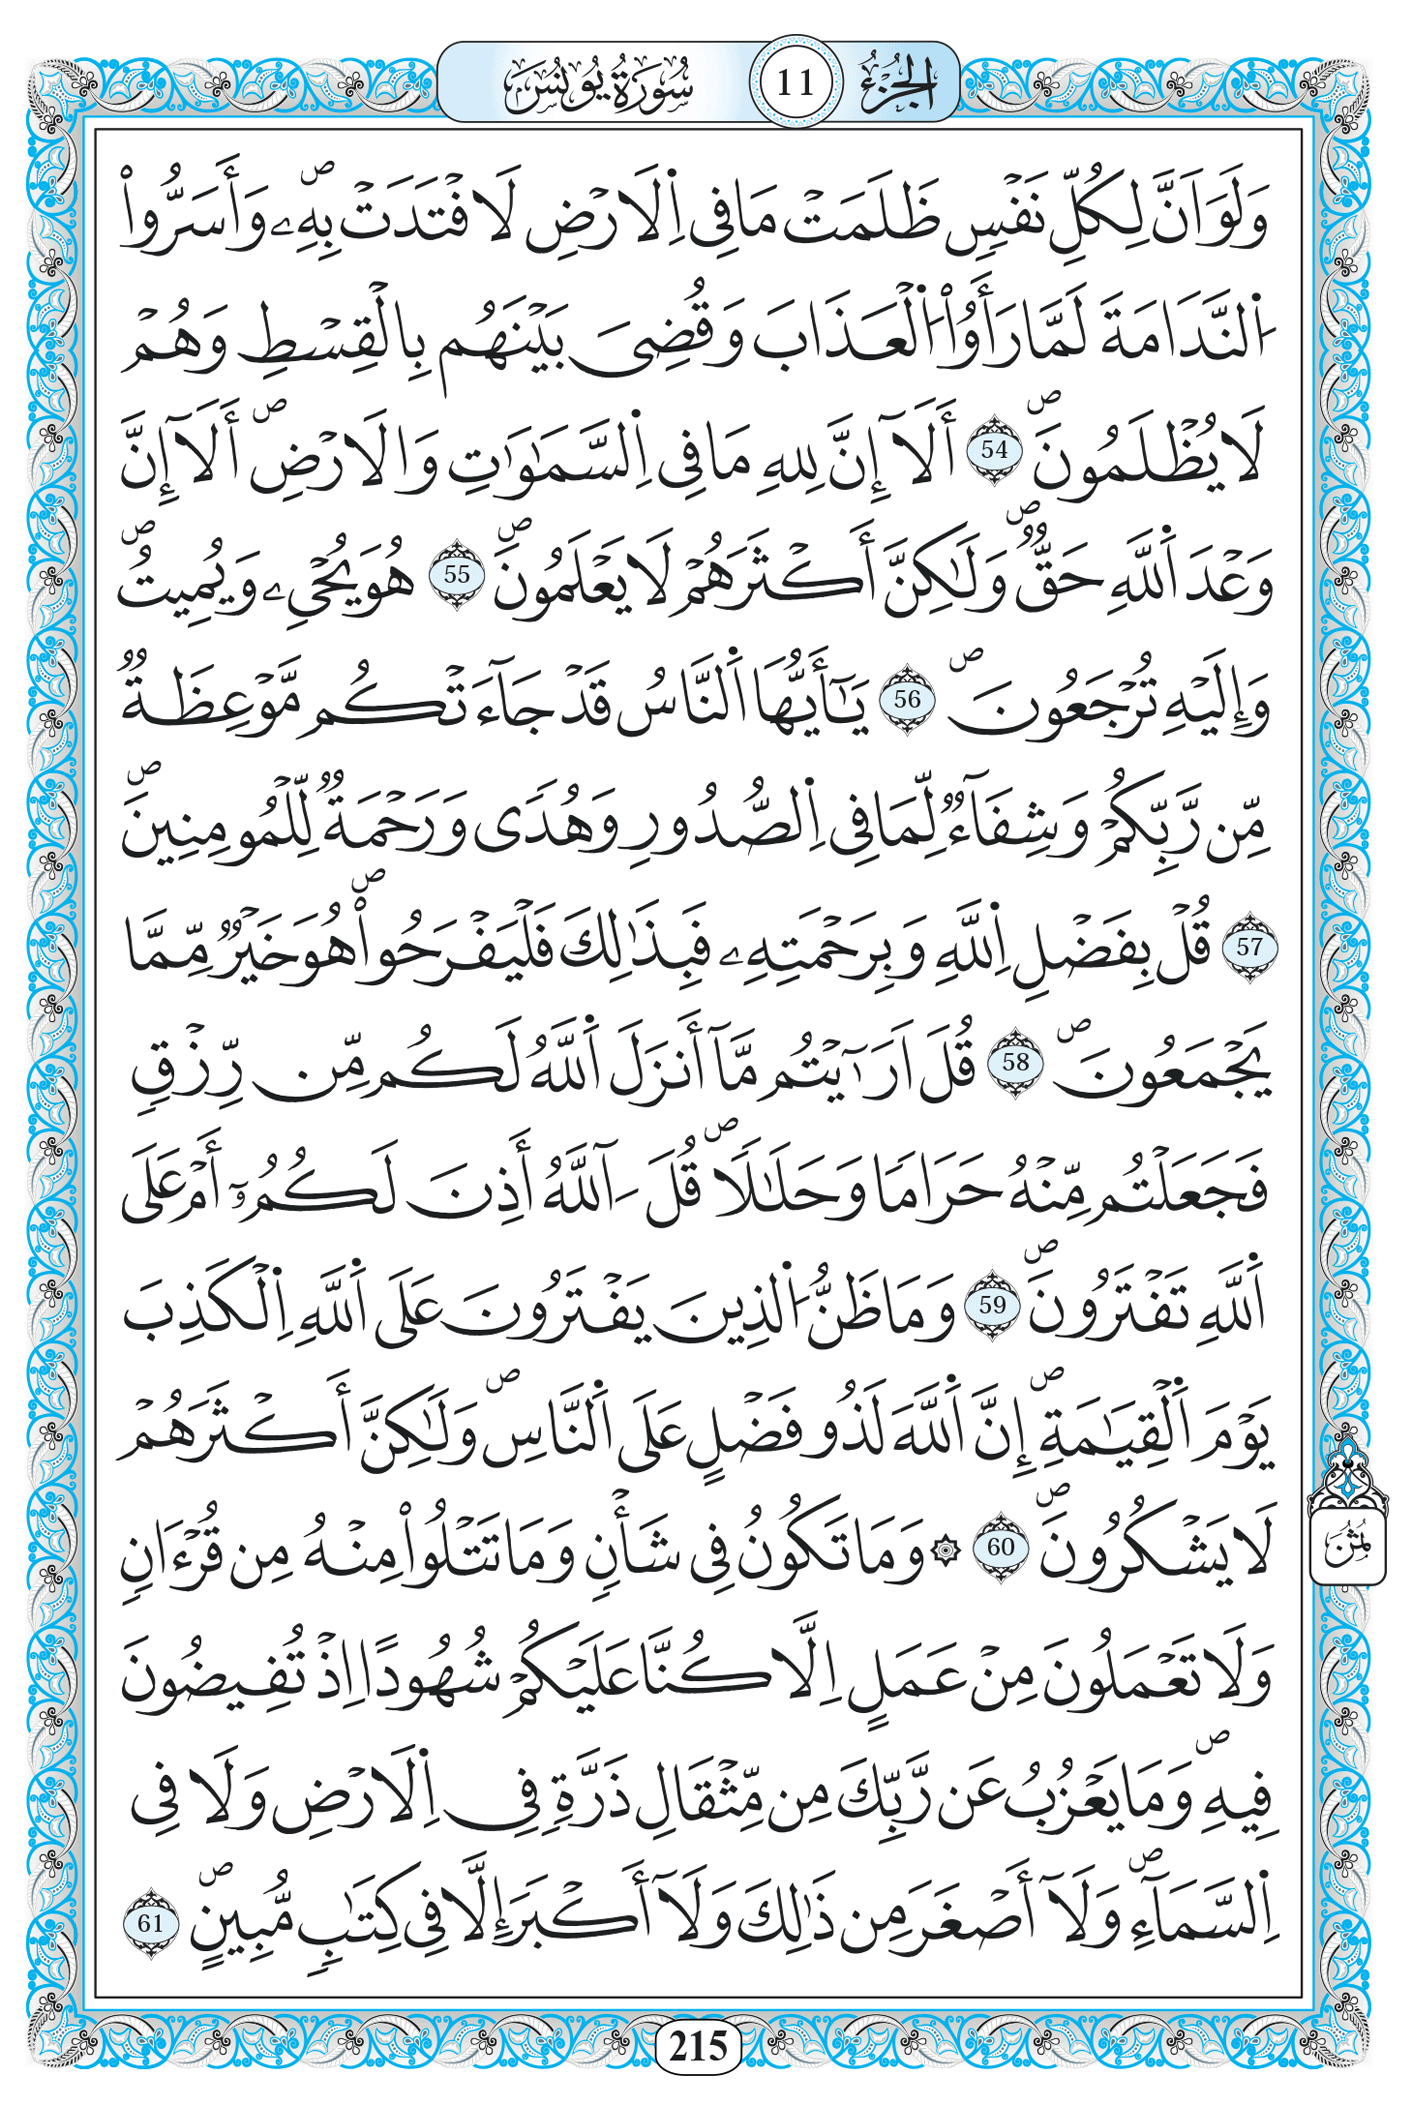 الجزء 11 سورة يونس
وَلَوَ اَنَّ لِكُلِّ نَفْسٖ ظَلَمَتْ مَا فِے اِ۬لَارْضِ لَافْتَدَتْ بِهِۦۖ وَأَسَرُّواْ
اُ۬لنَّدَامَةَ لَمَّا رَأَوُاْ اُ۬لْعَذَابَ وَقُضِيَ بَيْنَهُم بِالْقِسْطِ وَهُمْ
لَا يُظْلَمُونَۖ 54 أَلَآ إِنَّ لِلهِ مَا فِے اِ۬لسَّمَٰوَٰتِ وَالَارْضِۖ أَلَآ إِنَّ
وَعْدَ اَ۬للَّهِ حَقّٞۖ وَلَٰكِنَّ أَكْثَرَهُمْ لَا يَعْلَمُونَۖ 55 هُوَ يُحْيِۦ وَيُمِيتُۖ
وَإِلَيْهِ تُرْجَعُونَۖ 56 يَٰٓأَيُّهَا اَ۬لنَّاسُ قَدْ جَآءَتْكُم مَّوْعِظَةٞ
مِّن رَّبِّكُمْ وَشِفَآءٞ لِّمَا فِے اِ۬لصُّدُورِ وَهُديٗ وَرَحْمَةٞ لِّلْمُومِنِينَۖ
57 قُلْ بِفَضْلِ اِ۬للَّهِ وَبِرَحْمَتِهِۦ فَبِذَٰلِكَ فَلْيَفْرَحُواْۖ هُوَ خَيْرٞ مِّمَّا
يَجْمَعُونَۖ 58 قُلَ اَرَٰٓيْتُم مَّآ أَنزَلَ اَ۬للَّهُ لَكُم مِّن رِّزْقٖ
فَجَعَلْتُم مِّنْهُ حَرَاماٗ وَحَلَٰلاٗۖ قُلَ آللَّهُ أَذِنَ لَكُمُۥٓ أَمْ عَلَى
اَ۬للَّهِ تَفْتَرُونَۖ 59 وَمَا ظَنُّ اُ۬لذِينَ يَفْتَرُونَ عَلَى اَ۬للَّهِ اِ۬لْكَذِبَ
يَوْمَ اَ۬لْقِيَٰمَةِۖ إِنَّ اَ۬للَّهَ لَذُو فَضْلٍ عَلَى اَ۬لنَّاسِۖ وَلَٰكِنَّ أَكْثَرَهُمْ
لَا يَشْكُرُونَۖ 60 ۞ وَمَا تَكُونُ فِے شَأْنٖ وَمَا تَتْلُواْ مِنْهُ مِن قُرْءَانٖ
وَلَا تَعْمَلُونَ مِنْ عَمَلٍ اِلَّا كُنَّا عَلَيْكُمْ شُهُوداً اِذْ تُفِيضُونَ
ثمن
فِيهِۖ وَمَا يَعْزُبُ عَن رَّبِّكَ مِن مِّثْقَالِ ذَرَّةٖ فِے اِ۬لَارْضِ وَلَا فِے
اِ۬لسَّمَآءِۖ وَلَآ أَصْغَرَ مِن ذَٰلِكَ وَلَآ أَكْبَرَ إِلَّا فِے كِتَٰبٖ مُّبِينٍۖ 61
215